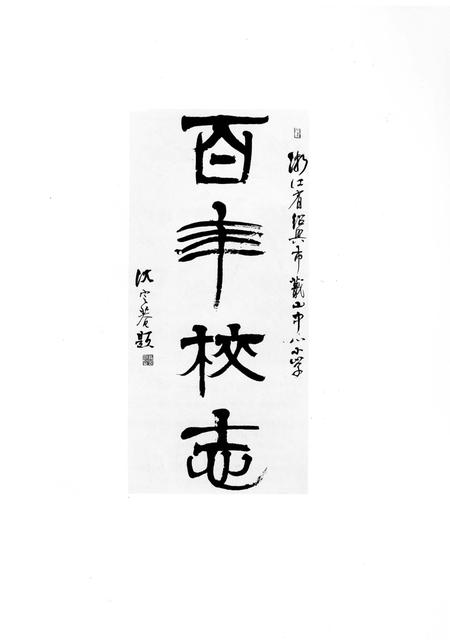 浙江省绍兴市蕺山中心小学
百年校志
沈定庵题